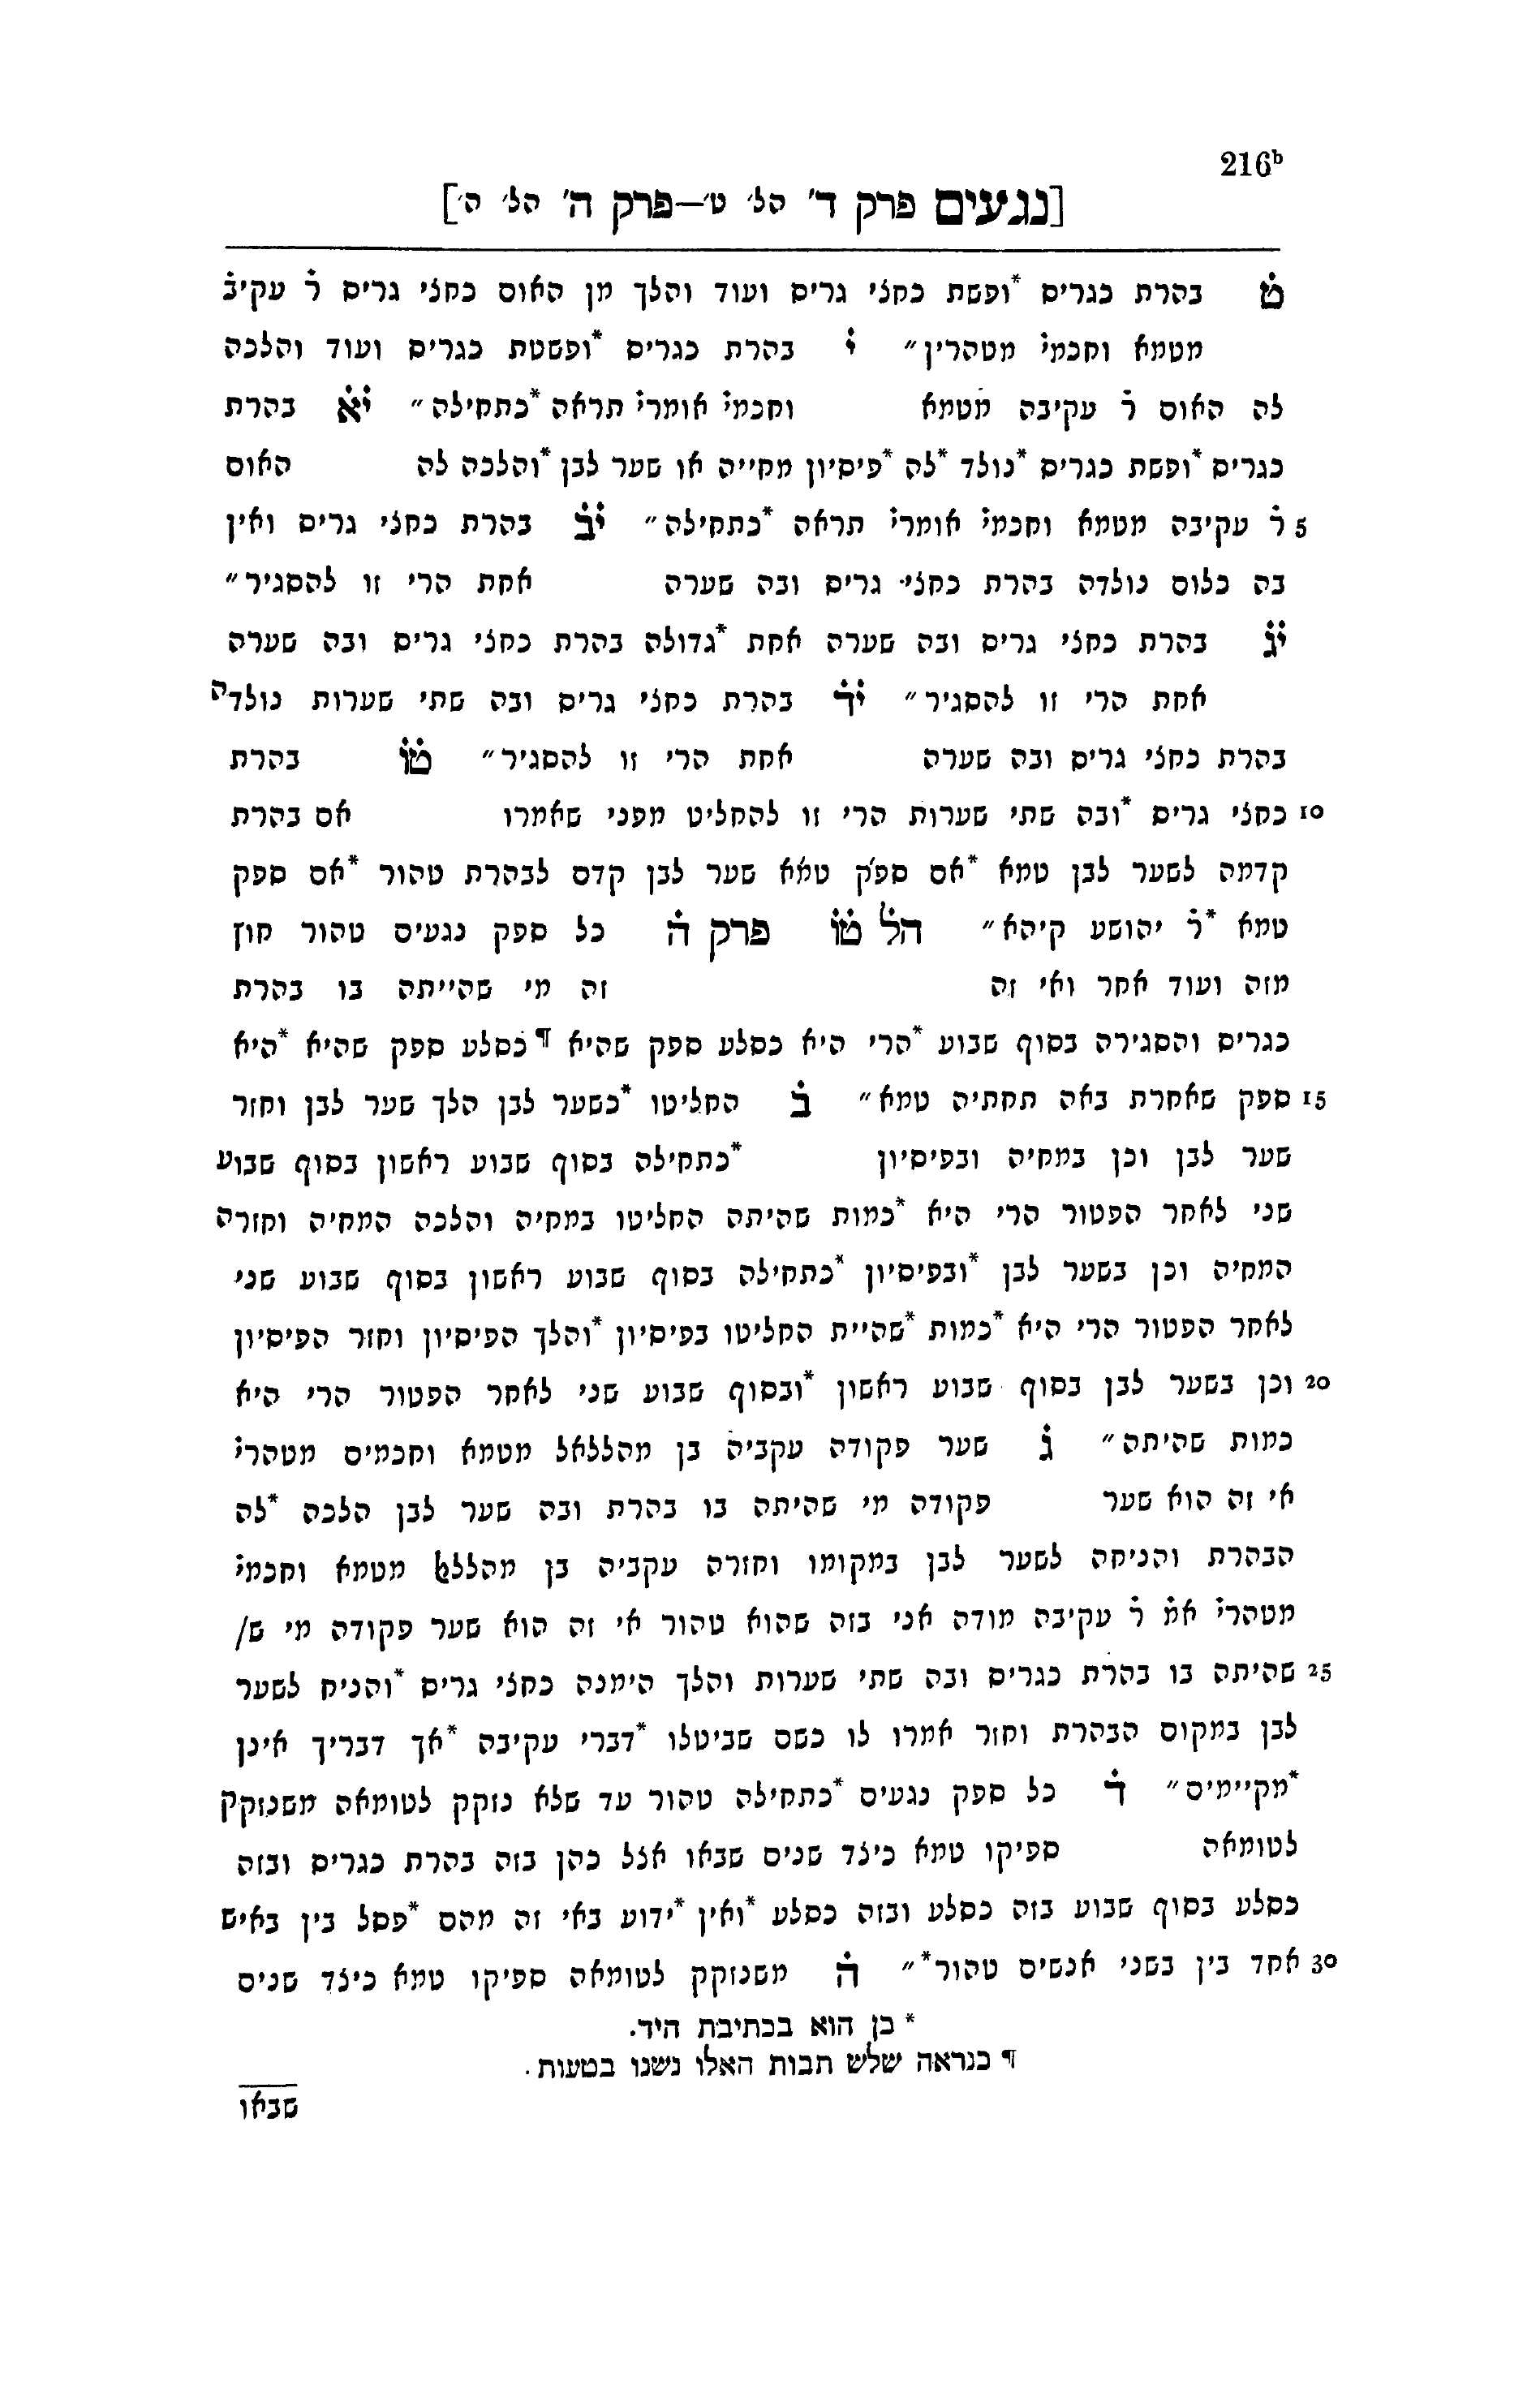 216ᵇ
[נגעים פרק ד' הל' ט'—פרק ה' הל' ה']
ט֗ בהרת כגריס *ופשת כחצי גריס ועוד והלך מן האום כחצי גריס ר֗ עקיב֗
מטמא וחכמי֗ מטהרין״ י֗ בהרת כגריס *ופשטת כגריס ועוד והלכה
לה האום ר֗ עקיבה מטמא וחכמי֗ אומרי֗ תראה *כתחילה״ י֗א֗ בהרת
כגריס *ופשת כגריס *נולד *לה *פיסיון מחייה או שער לבן *והלכה לה האום
5 ר֗ עקיבה מטמא וחכמי֗ אומרי֗ תראה *כתחילה״ י֗ב֗ בהרת כחצי גריס ואין
בה כלום נולדה בהרת כחצי גריס ובה שערה אחת הרי זו להסגיר״
י֗ג֗ בהרת כחצי גריס ובה שערה אחת *גדולה בהרת כחצי גריס ובה שערה
אחת הרי זו להסגיר״ י֗ד֗ בהרת כחצי גריס ובה שתי שערות נולדה
בהרת כחצי גריס ובה שערה אחת הרי זו להסגיר״ ט֗ו֗ בהרת
10 כחצי גריס *ובה שתי שערות הרי זו להחליט מפני שאמרו אם בהרת
קדמה לשער לבן טמא *אם ספק טמא שער לבן קדם לבהרת טהור *אם ספק
טמא *ר֗ יהושע קיהא״ הל֗ ט֗ו֗ פרק ה֗ כל ספק נגעים טהור חוץ
מזה ועוד אחר ואי זה זה מי שהייתה בו בהרת
כגריס והסגירה בסוף שבוע *הרי היא כסלע ספק שהיא ¶כסלע ספק שהיא *היא
15 ספק שאחרת באה תחתיה טמא״ ב֗ החליטו *בשער לבן הלך שער לבן וחזר
שער לבן וכן במחיה ובפיסיון *כתחילה בסוף שבוע ראשון בסוף שבוע
שני לאחר הפטור הרי היא *כמות שהיתה החליטו במחיה והלכה המחיה וחזרה
המחיה וכן בשער לבן *ובפיסיון *כתחילה בסוף שבוע ראשון בסוף שבוע שני
לאחר הפטור הרי היא *כמות *שהיית החליטו בפיסיון *והלך הפיסיון וחזר הפיסיון
20 וכן בשער לבן בסוף שבוע ראשון *ובסוף שבוע שני לאחר הפטור הרי היא
כמות שהיתה״ ג֗ שער פקודה עקביה בן מהללאל מטמא וחכמים מטהרי֗
אי זה הוא שער פקודה מי שהיתה בו בהרת ובה שער לבן הלכה *לה
הבהרת והניחה לשער לבן במקומו וחזרה עקביה בן מהללﭏ מטמא וחכמי֗
מטהרי֗ אמ֗ ר֗ עקיבה מודה אני בזה שהוא טהור אי זה הוא שער פקודה מי ש/
25 שהיתה בו בהרת כגריס ובה שתי שערות והלך הימנה כחצי גריס *והניח לשער
לבן במקום הבהרת וחזר אמרו לו כשם שביטלו *דברי עקיבה *אך דבריך אינן
*מקיימים״ ד֗ כל ספק נגעים *כתחילה טהור עד שלא נזקק לטומאה משנזקק
לטומאה ספיקו טמא כיצד שנים שבאו אצל כהן בזה בהרת כגריס ובזה
כסלע בסוף שבוע בזה כסלע ובזה כסלע *ואין *ידוע באי זה מהם *פסל בין באיש
30 אחד בין בשני אנשים טהור*״ ה֗ משנזקק לטומאה ספיקו טמא כיצד שנים
* כן הוא בכתיבת היד.
¶ כנראה שלש תבות האלו נשנו בטעות.
שבאו